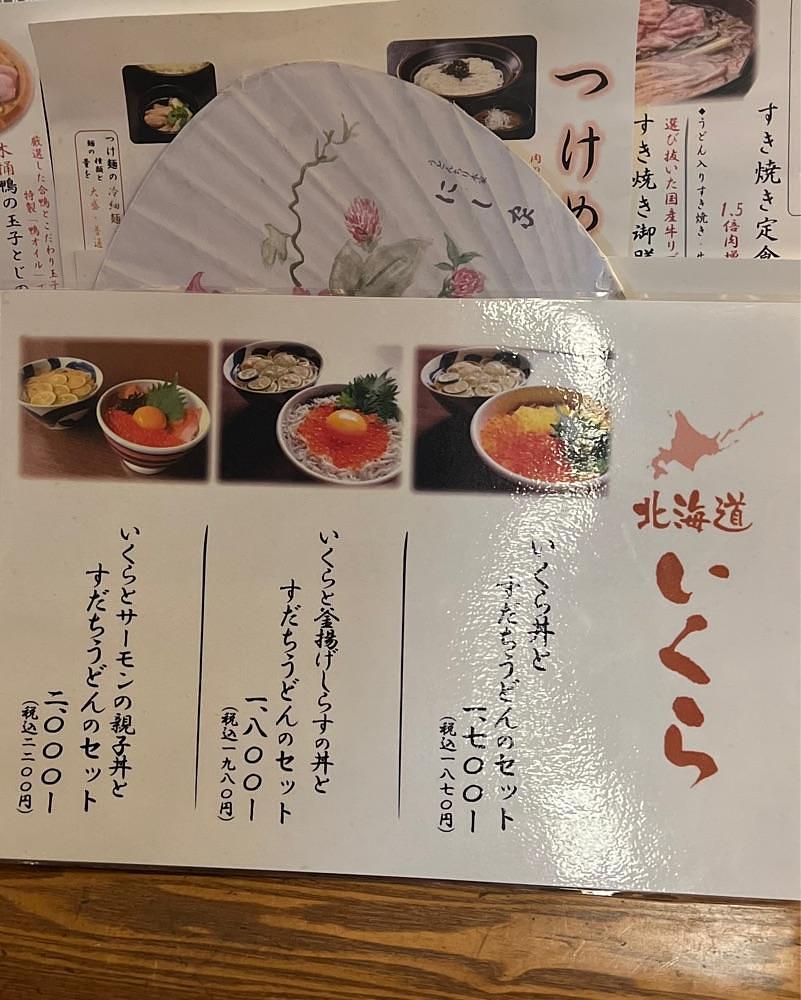 北海道
いくら
いくら丼と
すだちうどんのセット
一、七〇〇ー
（税込一八七〇円）
いくらと釜揚げしらすの丼と
すだちうどんのセット
一、八〇〇ー
（税込一九八〇円）
いくらとサーモンの親子丼と
すだちうどんのセット
二、〇〇〇ー
（税込二二〇〇円）
すき焼き定食
1.5
倍肉増
◆うどん入りすき焼き・
選び抜いた国産牛リブ
すき焼き御膳
つけめ
にし
つけ麺の
冷細麺
麺の種類と
麺の量を
大盛・普通
厳選した合鴨とこだわり玉子
特製「鴨オイル」
鴨の玉子とじの